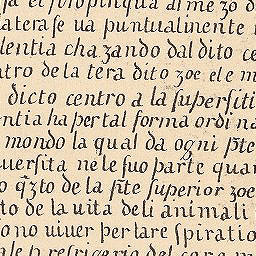 et si propinqua al me zo d
aterase ua puntualinente
lentia cha zando dal dito ce
tro de la tera dito zoe el e m
dicto centro a la supersiti
ntia ha per tal forma ordi na
mondo la qual da ogni pte
uersita ne le suo parte quan
o qzto de la pte superior zoe
to de la uita deli animali
ono uiuer per lare spiratio